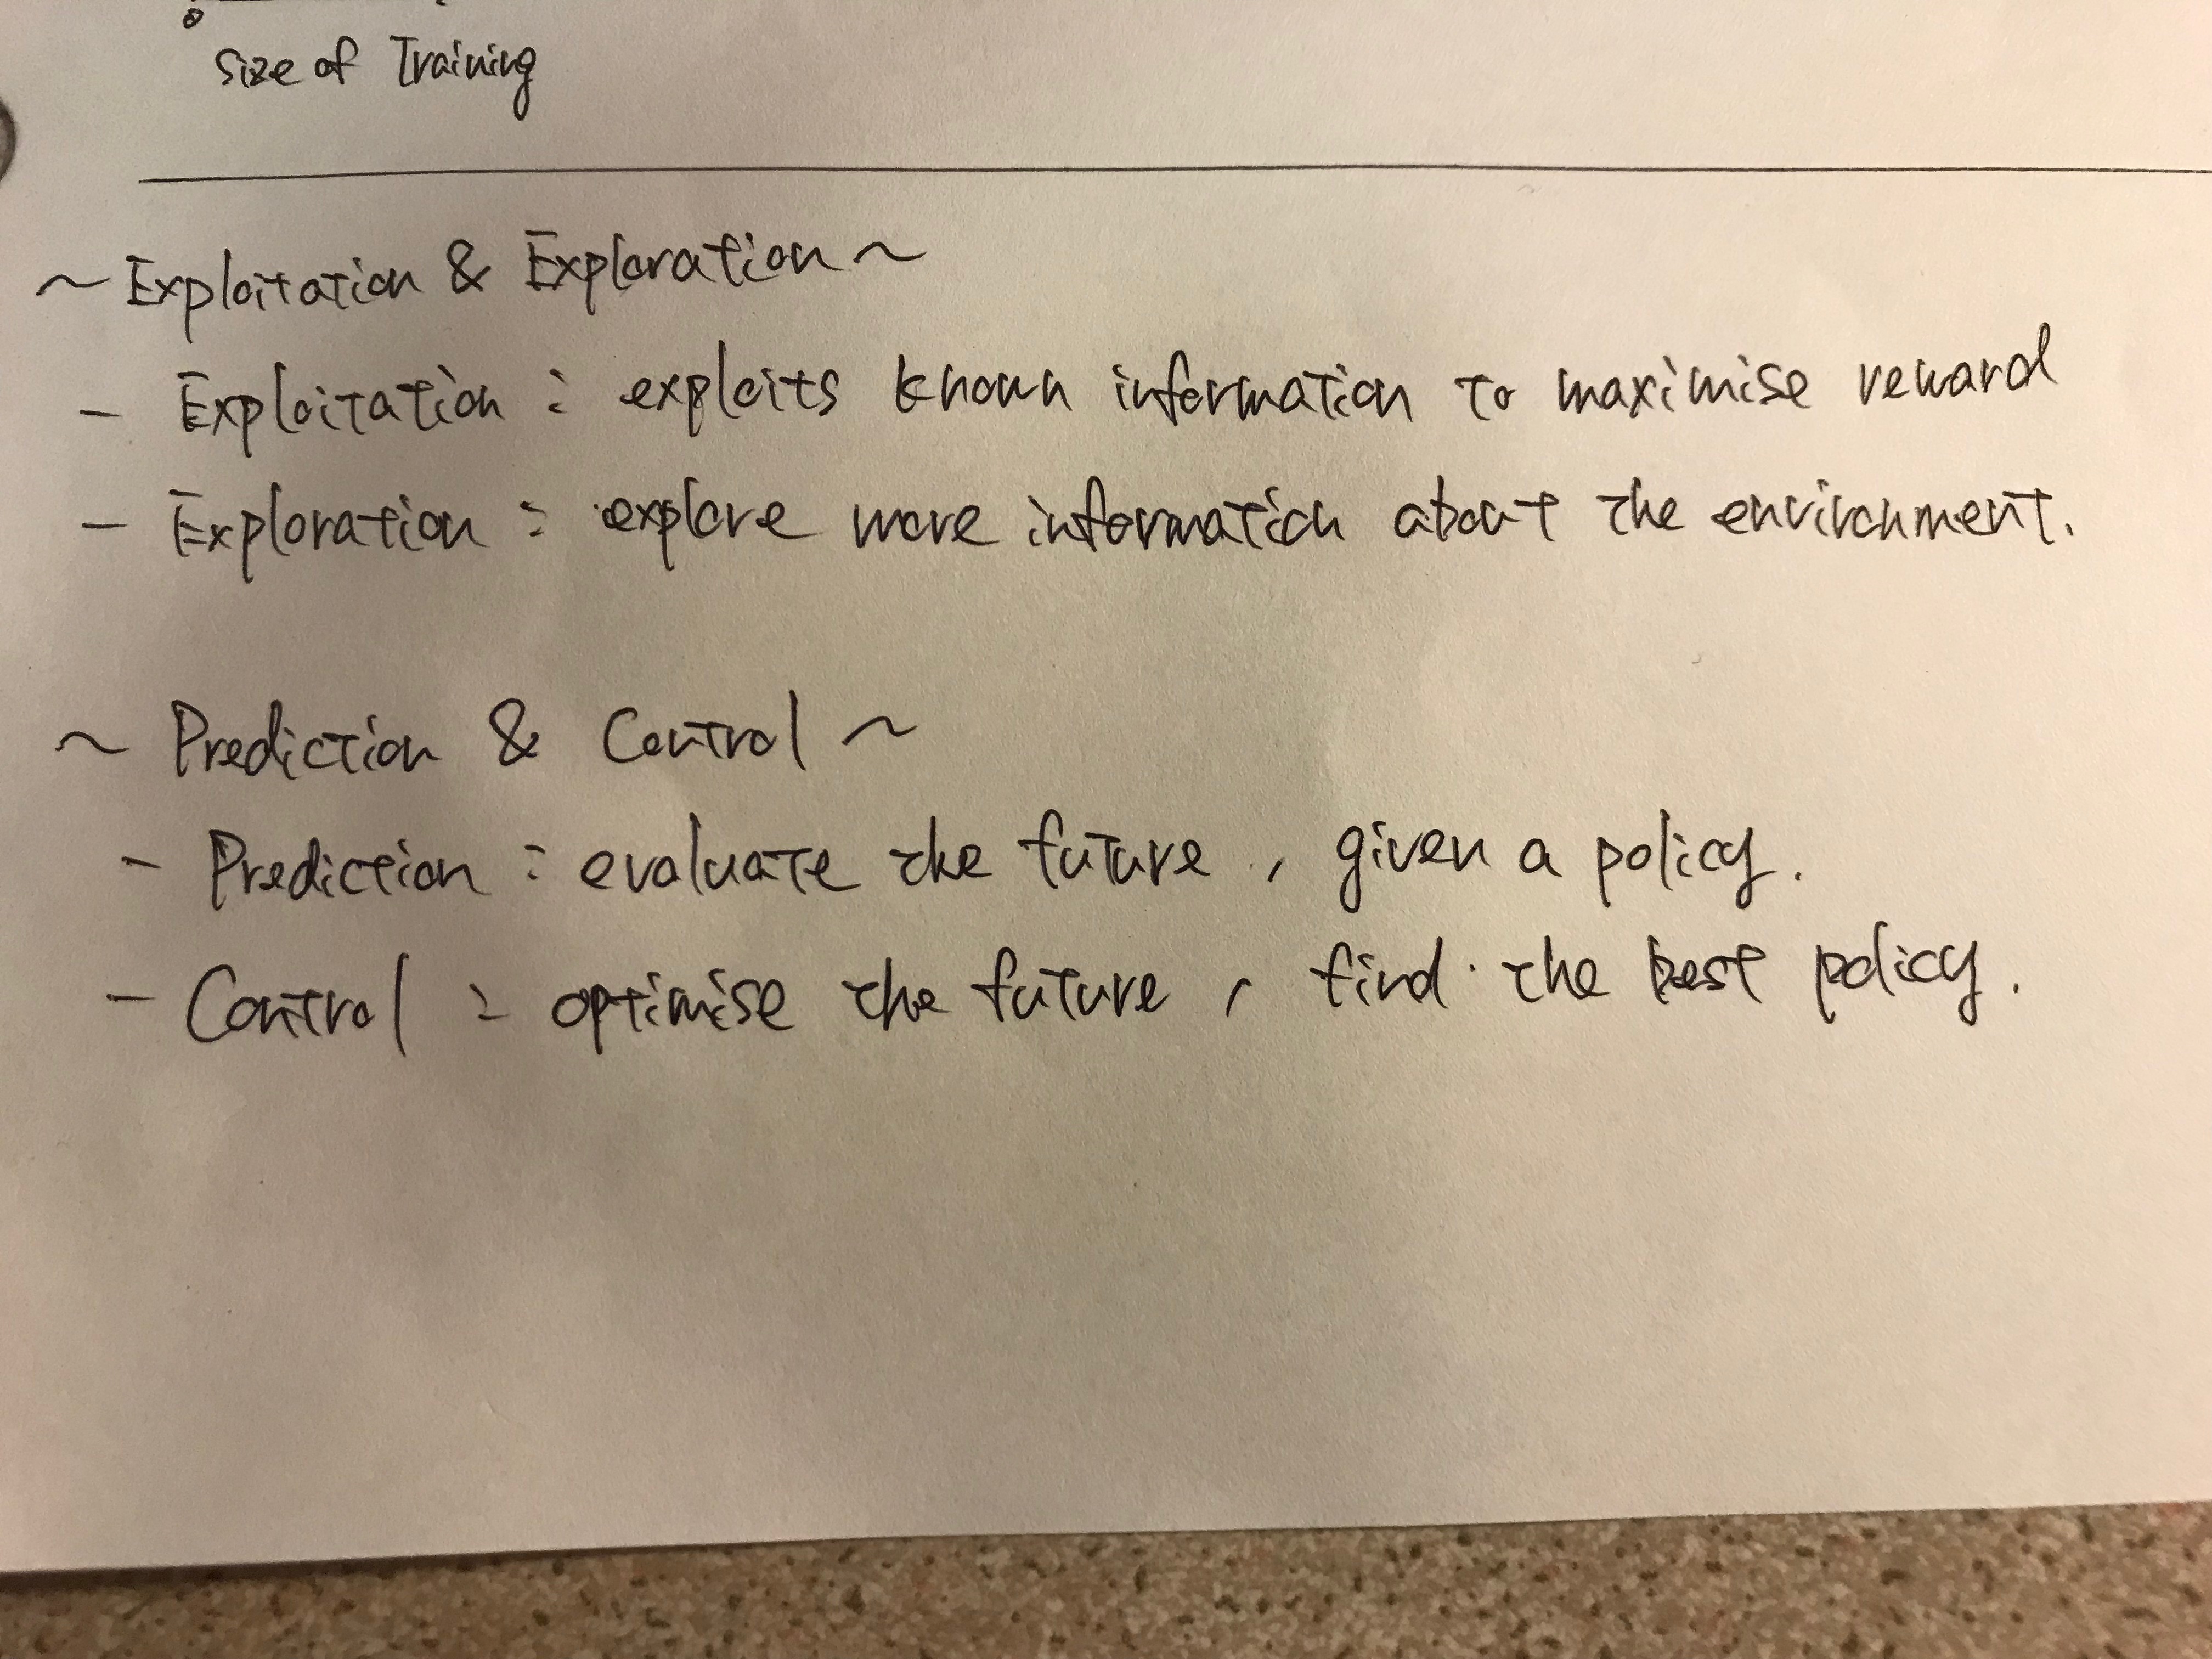 size of Training
~ Exploitation & Exploration ~
- Exploitation : exploits known information to maximise reward
- Exploration : explore more information about the environment.
~ Prediction & Control ~
- Prediction : evaluate the future , given a policy.
- Control : optimise the future , find the best policy.